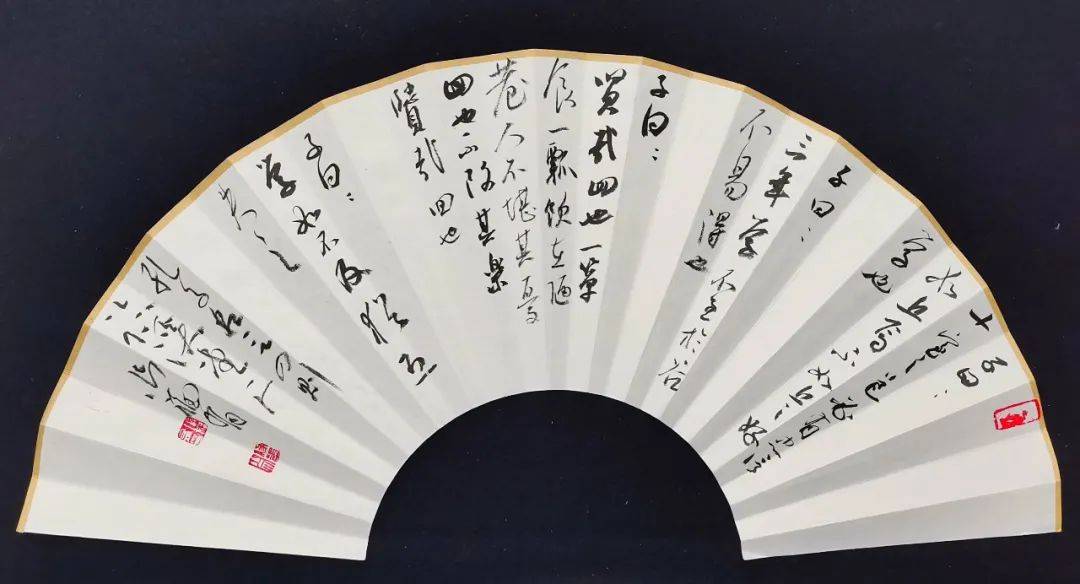 子曰：
十室之邑必有忠信
如丘焉不如丘之好
学也
子曰：
三年学不至於谷
不易得也
子曰：
贤哉回也一箪
食一瓢饮在陋
巷人不堪其憂
回也不改其樂
賢哉回也
子曰：
学如不及猶恐
失之